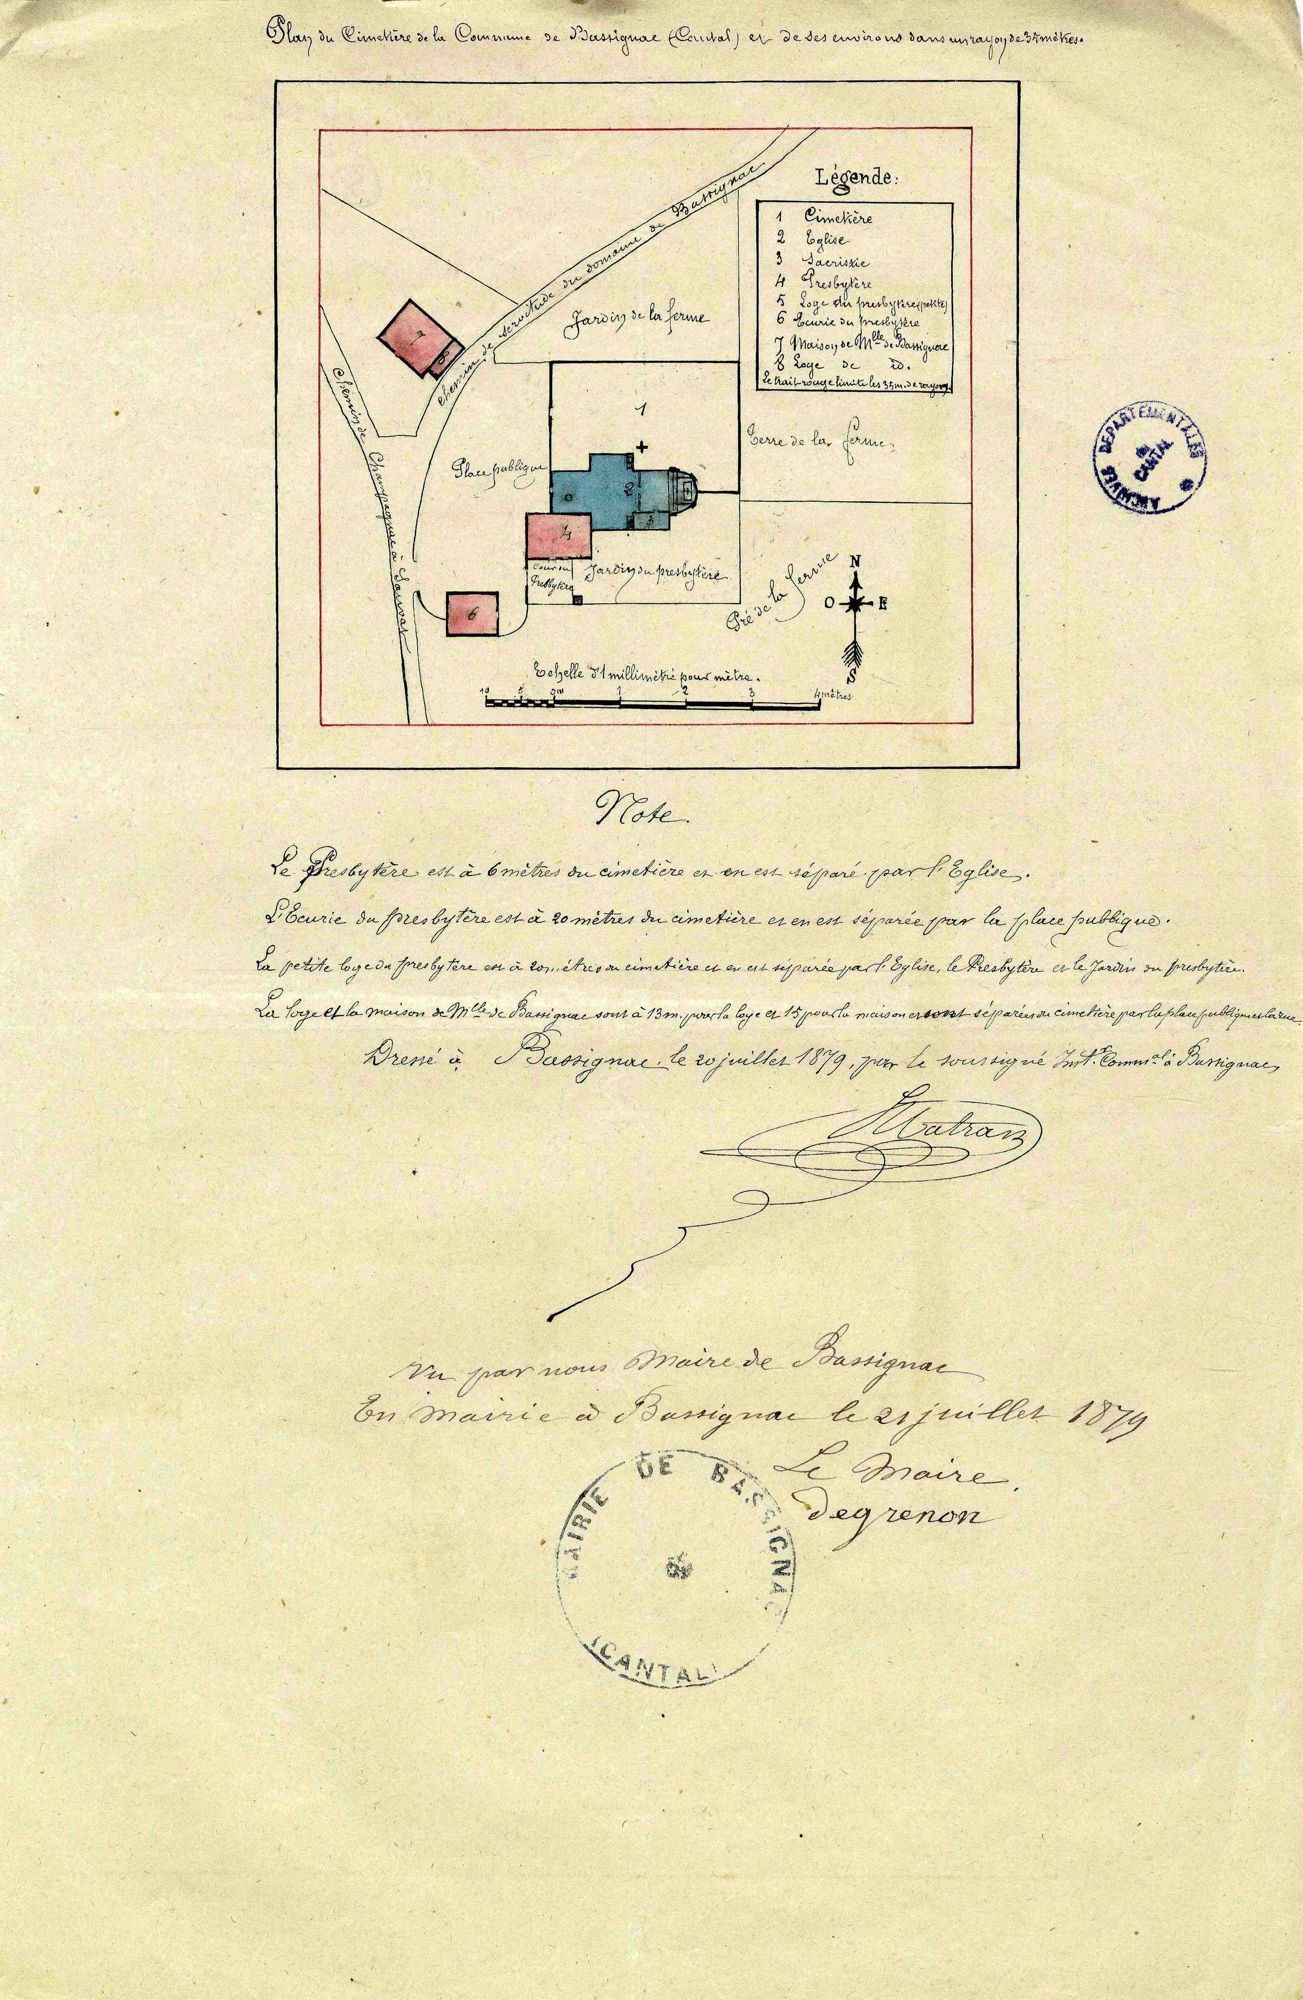 Plan du Cimetière de la Commune de Bassignac (Cantal) et de ses environs dans un rayon de 35 mètres.
Légende:
1 Cimetière
2 Eglise
3 Sacristie
4 Presbytère
5 Loge du presbytère (petite)
6 Ecurie du presbytère
7 Maison de Mlle de Bassignac
8 Loge de id.
Le trait rouge limite les 35 m. de rayon.
Chemin de servitude du domaine de Bassignac
Jardin de la ferme
7
8
Chemin de Champagnac à Sauvat
1
Place publique
Terre de la ferme
2
3
4
Cour du
Presbytère
Jardin du presbytère
Pré de la ferme
6
N
O E
S
Echelle d'1 millimètre pour mètre.
10 5 0m 1 2 3 4 mètres
ARCHIVES DEPARTEMENTALES
du
CANTAL
Note.
Le Presbytère est à 6 mètres du cimetière et en est séparé par l'Eglise.
L'Ecurie du presbytère est à 20 mètres du cimetière et en est séparée par la place publique.
La petite loge du presbytère est à 20 mètres du cimetière et en est séparée par l'Eglise, le Presbytère et le Jardin du presbytère.
La loge et la maison de Mlle de Bassignac sont à 13 m. pour la loge et 15 pour la maison et sont séparées du cimetière par la place publique et la rue.
Dressé à Bassignac, le 20 juillet 1879, par le soussigné Instr. Commal à Bassignac,
Vu par nous Maire de Bassignac
En Mairie à Bassignac le 21 juillet 1879
Le Maire.
degrenon
MAIRIE DE BASSIGNAC
(CANTAL)